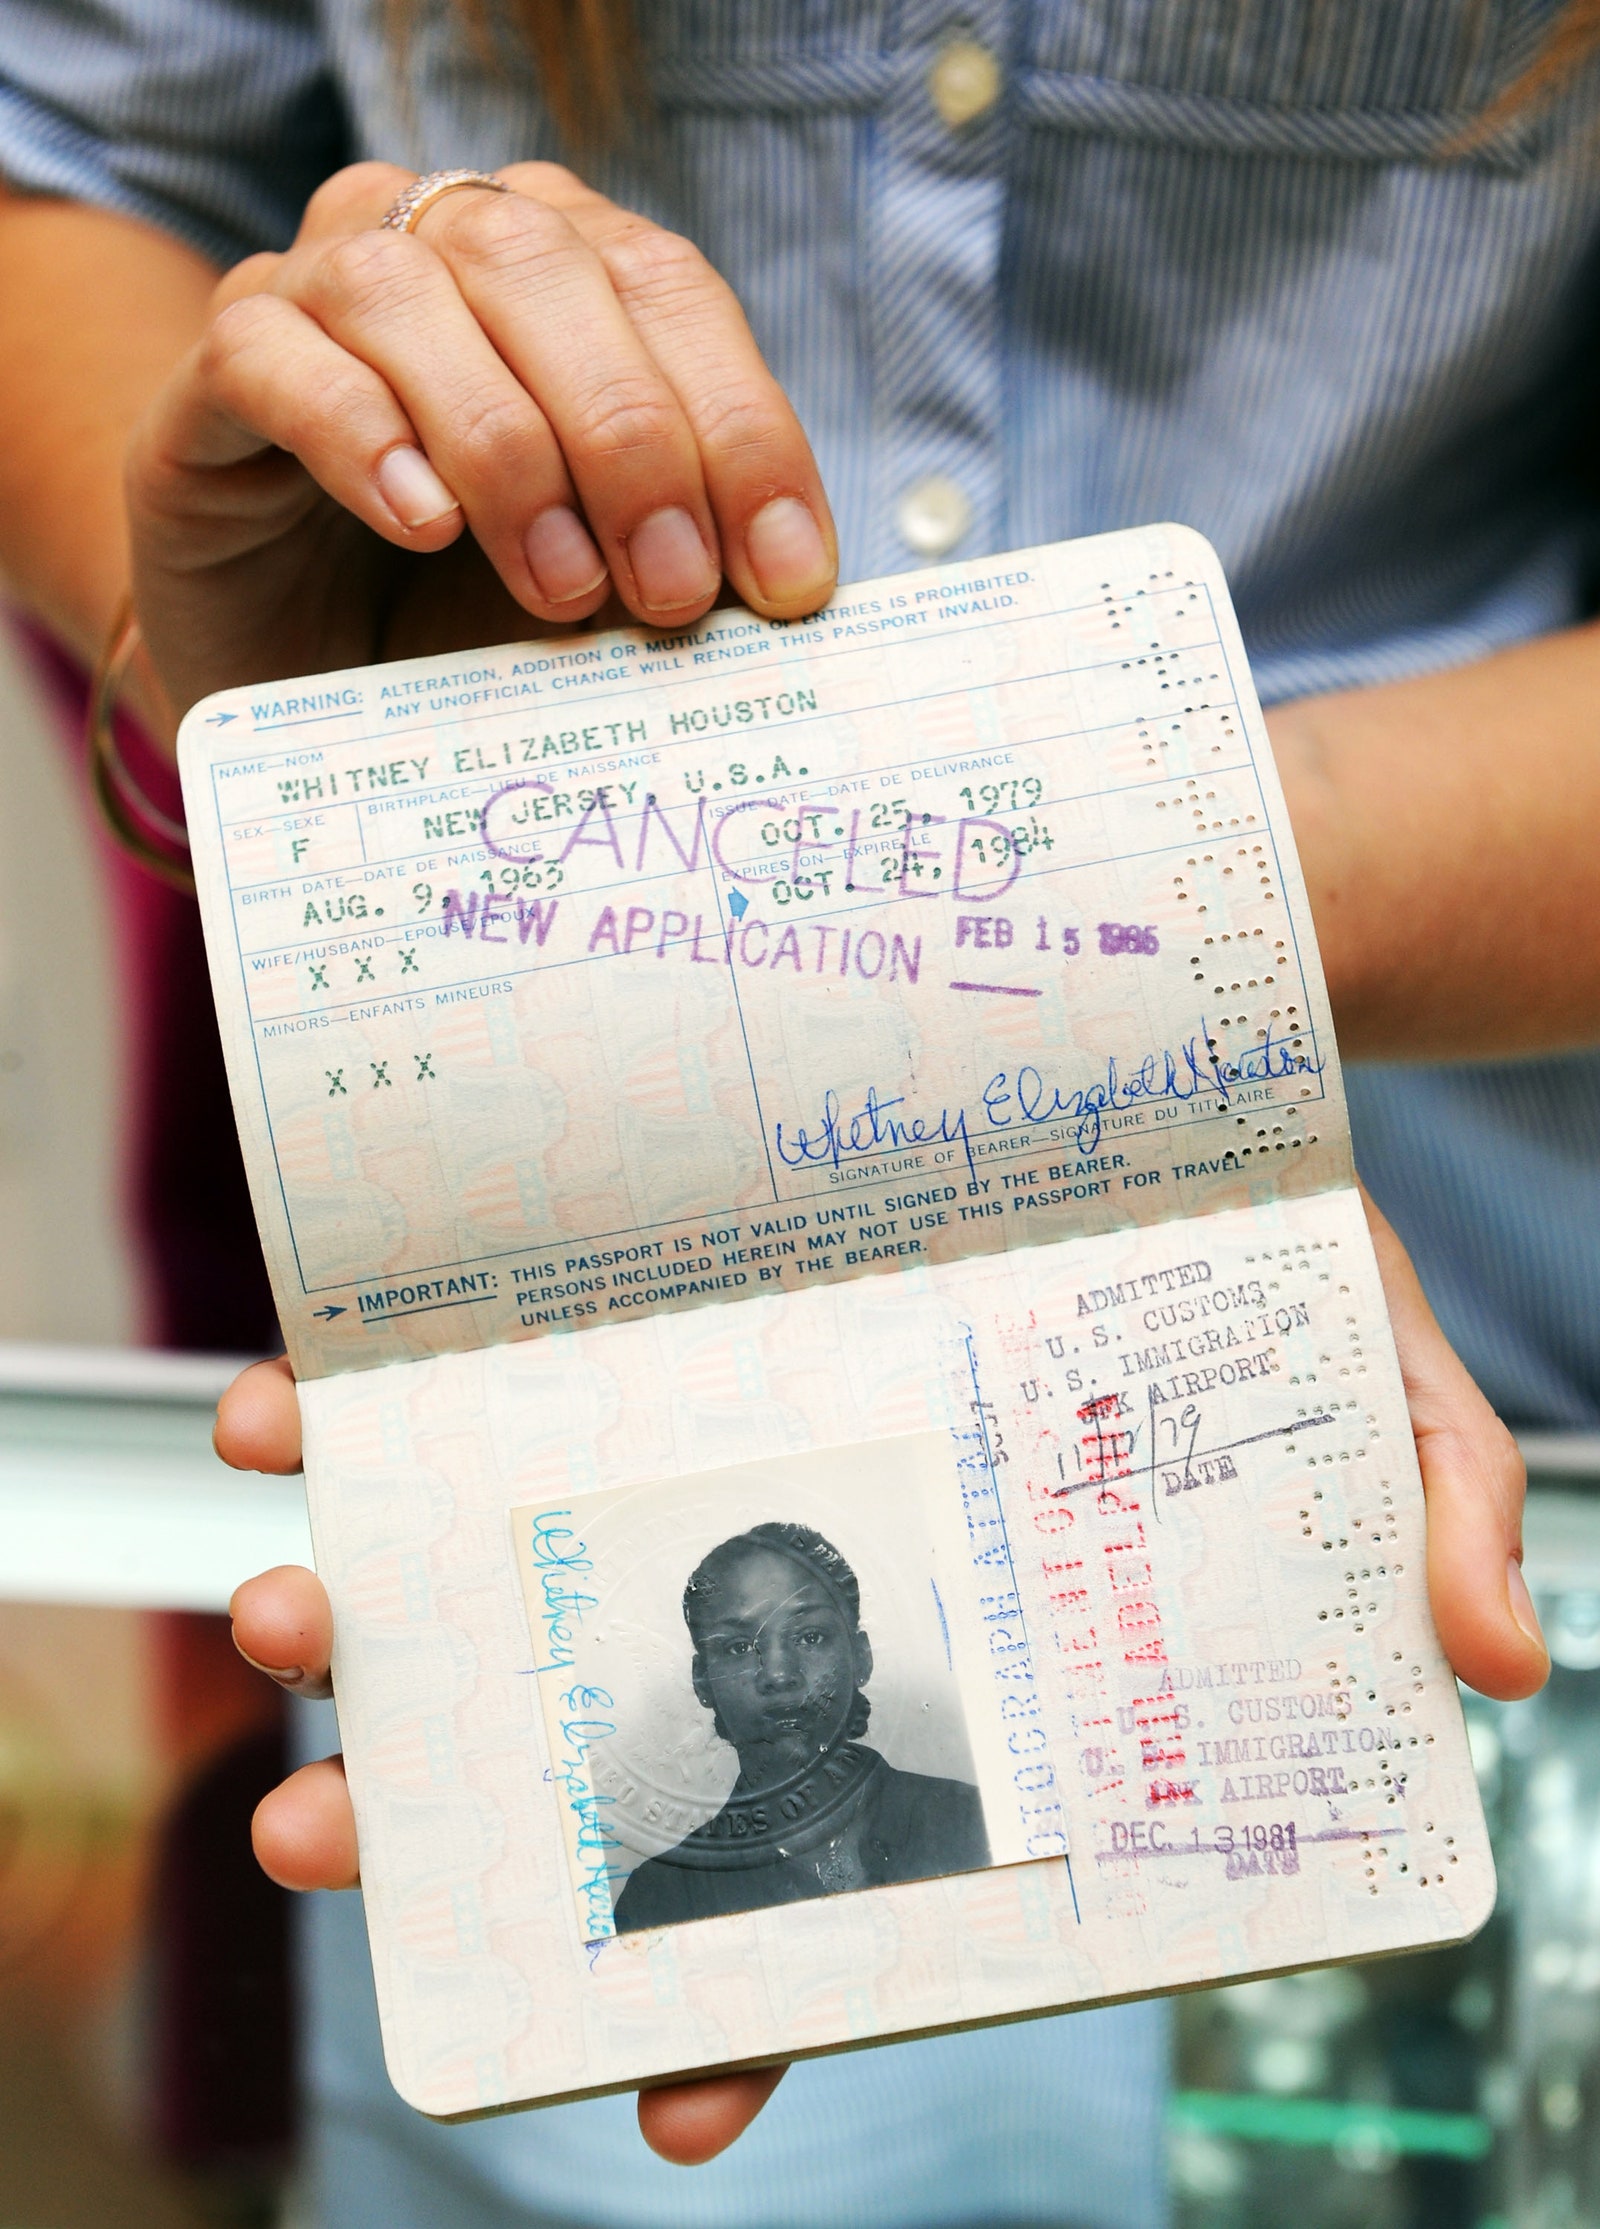 → WARNING: ALTERATION, ADDITION OR MUTILATION OF ENTRIES IS PROHIBITED.
ANY UNOFFICIAL CHANGE WILL RENDER THIS PASSPORT INVALID.
NAME—NOM
WHITNEY ELIZABETH HOUSTON
SEX—SEXE
F
BIRTHPLACE—LIEU DE NAISSANCE
NEW JERSEY, U.S.A.
ISSUE DATE—DATE DE DELIVRANCE
OCT. 25, 1979
BIRTH DATE—DATE DE NAISSANCE
AUG. 9, 1963
EXPIRES ON—EXPIRE LE
OCT. 24, 1984
CANCELED
NEW APPLICATION FEB 15
WIFE/HUSBAND—EPOUSE/EPOUX
X X X
MINORS—ENFANTS MINEURS
X X X
Whitney Elizabeth Houston
SIGNATURE OF BEARER—SIGNATURE DU TITULAIRE
→ IMPORTANT: THIS PASSPORT IS NOT VALID UNTIL SIGNED BY THE BEARER.
PERSONS INCLUDED HEREIN MAY NOT USE THIS PASSPORT FOR TRAVEL
UNLESS ACCOMPANIED BY THE BEARER.
ADMITTED
U. S. CUSTOMS
U. S. IMMIGRATION
JFK AIRPORT
79
DATE
Whitney Elizabeth Houston
STATES OF AM
ADMITTED
U. S. CUSTOMS
U. S. IMMIGRATION
JFK AIRPORT
DEC. 13 1981
DATE